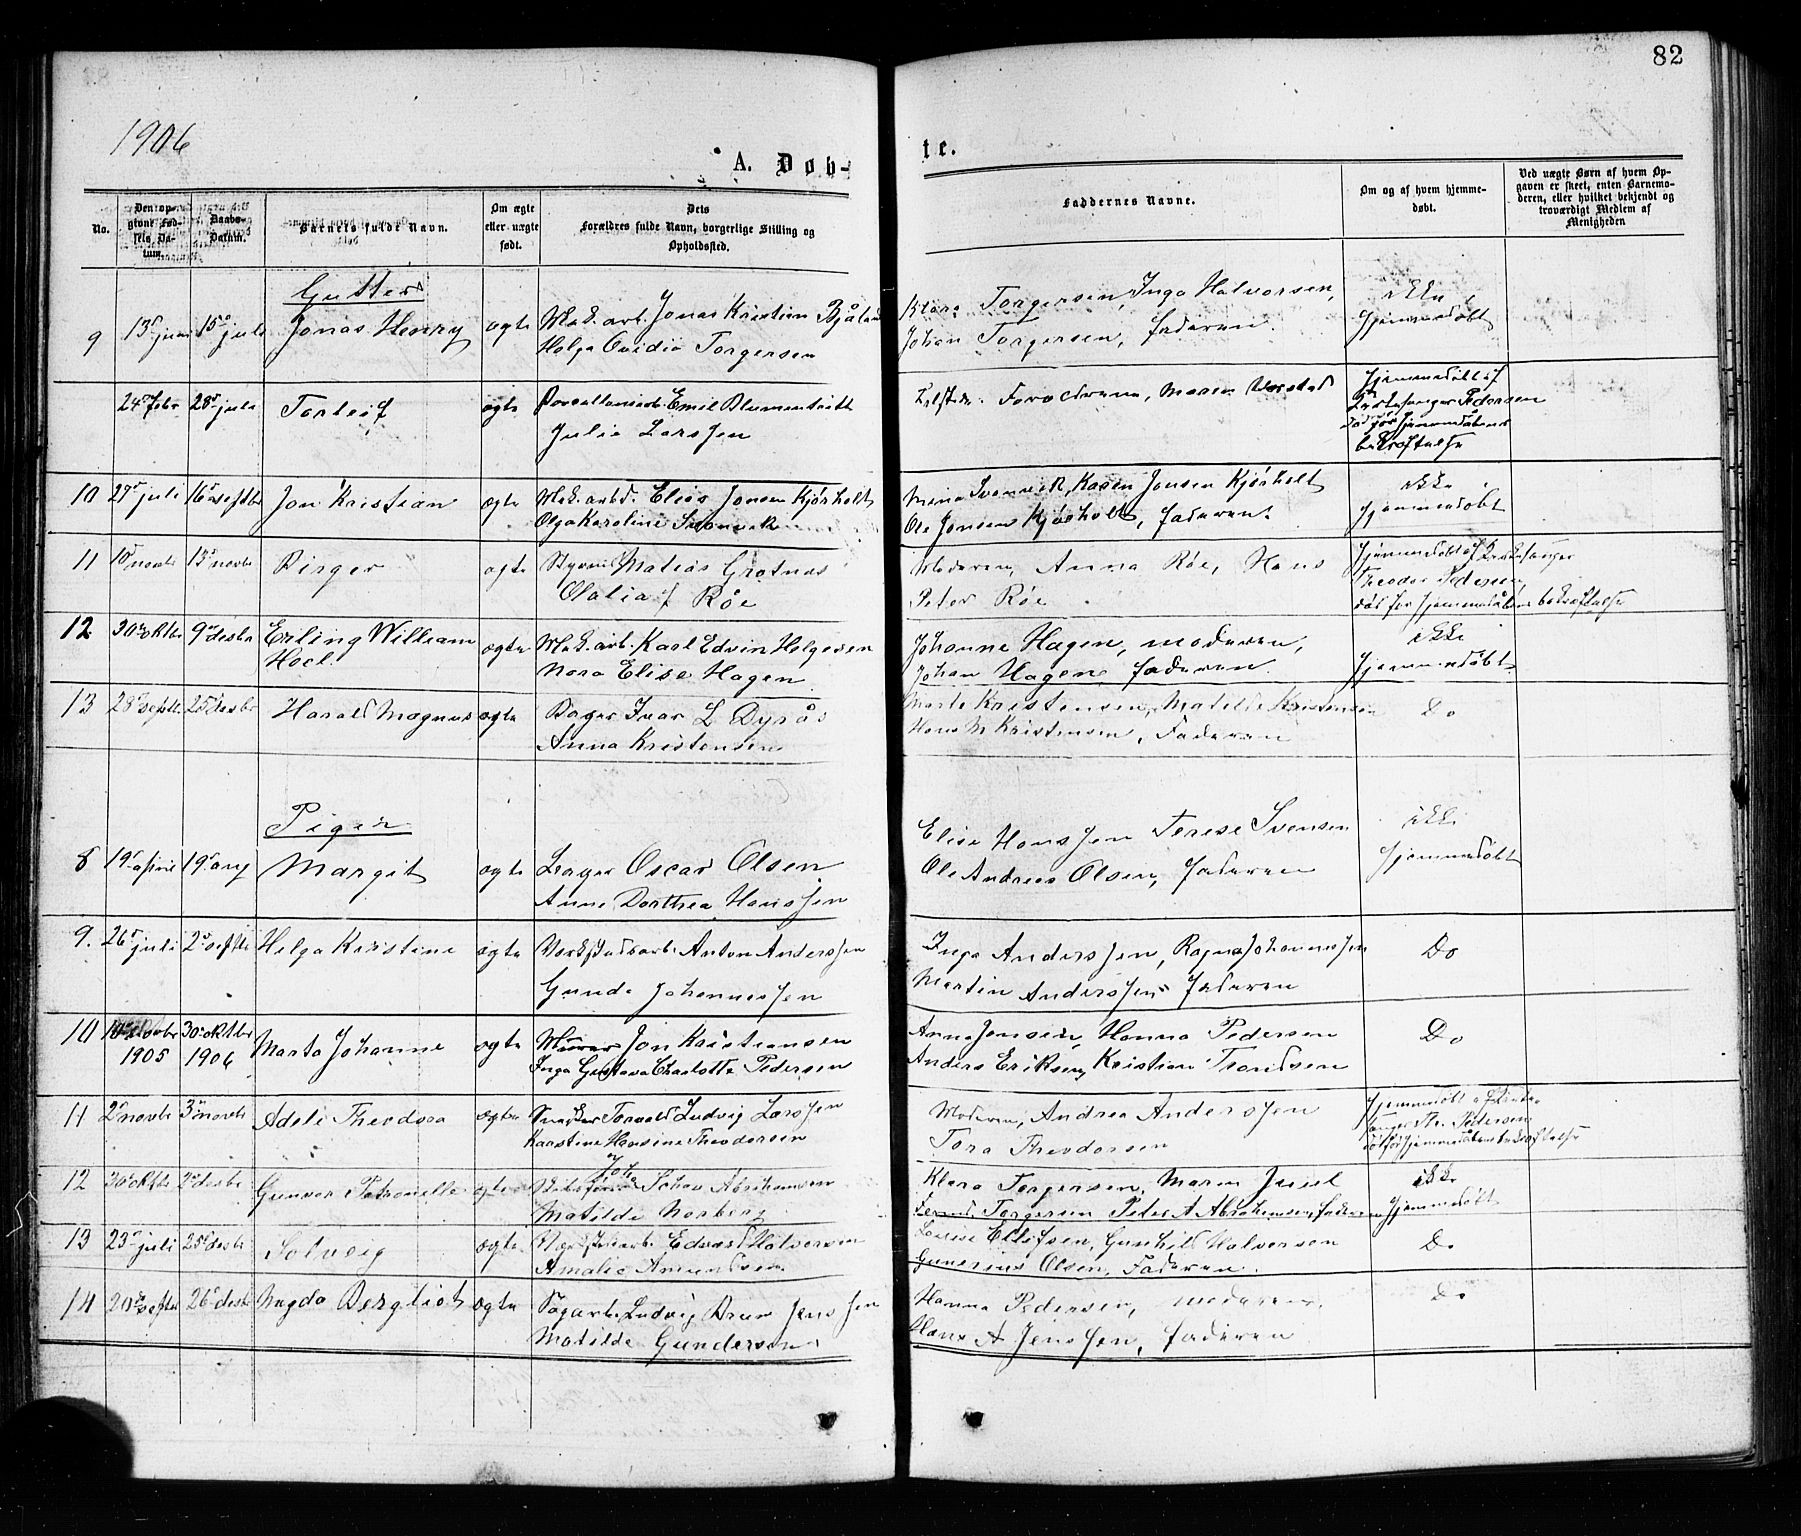 82
1906
A. Døb-
te.
No.
Den op-
givne Fød-
sels Da-
tum.
Daabs-
Datum.
Barnets fulde Navn.
Om ægte
eller uægte
født.
Dets
Forældres fulde Navn, borgerlige Stilling og
Opholdssted.
Faddernes Navne.
Om og af hvem hjemme-
døbt.
Ved uægte Børn af hvem Op-
gaven er skeet, enten Barnemo-
deren, eller hvilket bekjendt og
troværdigt Medlem af
Menigheden
Gutter
9 13de juni 15de juli Jonas Henry ægte Mek. arb. Jonas Kristian Bjåland
Helga Ovidia Torgersen
Klara Torgersen, Inga Halvorsen,
Johan Torgersen, faderen
ikke
hjemmedøbt
24de febr 28de juli Torleif ægte Porcellensarb. Emil Blumentritt
Julie Larssen
Forældrene, Maren
hjemmedøbt af
Pedersen
død før hjemmedåbens
bekræftelse
10 27de juli 16de septbr Jon Kristian ægte Mek. arbd. Elias Jonsen Kjørholt
Olga Karoline Svenvik
Mina Svenvik, Karen Jonsen Kjørholt
Ole Jonsen Kjørholt, faderen.
ikke
hjemmedøbt
11 10de novbr 15de novbr Birger ægte Styrmd Matias Grotnes
Olalia f Røe
Moderen, Anna Røe, Hans
Peter Røe
hjemmedøbt af Kirkesanger
Theodor Pedersen,
død før hjemmedåbens bekræftelse
12 30te oktbr 9de desbr Erling William
Hocl.
ægte Mek. arb. Karl Edvin Helgesen
Nora Elise Hagen
Johanne Hagen, moderen,
Johan Hagen, faderen
ikke
hjemmedøbt
13 28de septbr 25de desbr Harald Magnus ægte Bager Ivar L Dyrås
Anna Kristensen
Marte Kristensen, Matilde Kristensen
Hans M Kristensen, Faderen
Do
Piger
8 19de april 19de aug Margit ægte Oscar Olsen
Anne Dorthea Hanssen
Elise Hanssen Terese Svensen
Ole Andreas Olsen, faderen
ikke
hjemmedøbt
9. 26de juli 2de septbr Helga Kristine ægte Verkstedsarb. Anton Anderssen
Gunda Johannessen
Inga Anderssen, Ragna Johannessen
Martin Anderssen, faderen
Do
10 10de novbr
1905
30te oktbr
1906
Marta Johanne ægte Murer Jon Kristiansen
Inga Gustava Charlotte Pedersen
Anna Jensen, Hanna Pedersen
Anders Eriksen, Kristian Trondsen
Do
11 2den novbr 3die novbr Adele Theodora ægte Snedker Torvald Ludvig Larssen
Karstine Hansine Theodorsen
Moderen, Andrea Anderssen
Tora Theodorsen
hjemmedøbt af Kirke-
sanger Th. Pedersen
død før hjemmedåbens bekræftelse
12 30te oktbr 2den desbr Gunvor Petronelle ægte Johan Abrahamsen
Matilde Norberg
Klara Torgersen, Maren Juul
Torgersen Peter A Abrahamsen, faderen
ikke
hjemmedøbt
13 23de juli 25de desbr Solveig ægte Verkstedarb. Edvard Halvorsen
Amalie Amundsen
Louise Ellefsen, Gunhild Halvorsen
Gunerius Olsen, Faderen.
Do
14 20de septbr 26de desbr Magda Bergliot ægte Sagarb. Ludvig Brun Jenssen
Matilde Gundersen
Hanna Pedersen, moderen,
Hans A Jenssen, faderen
Do